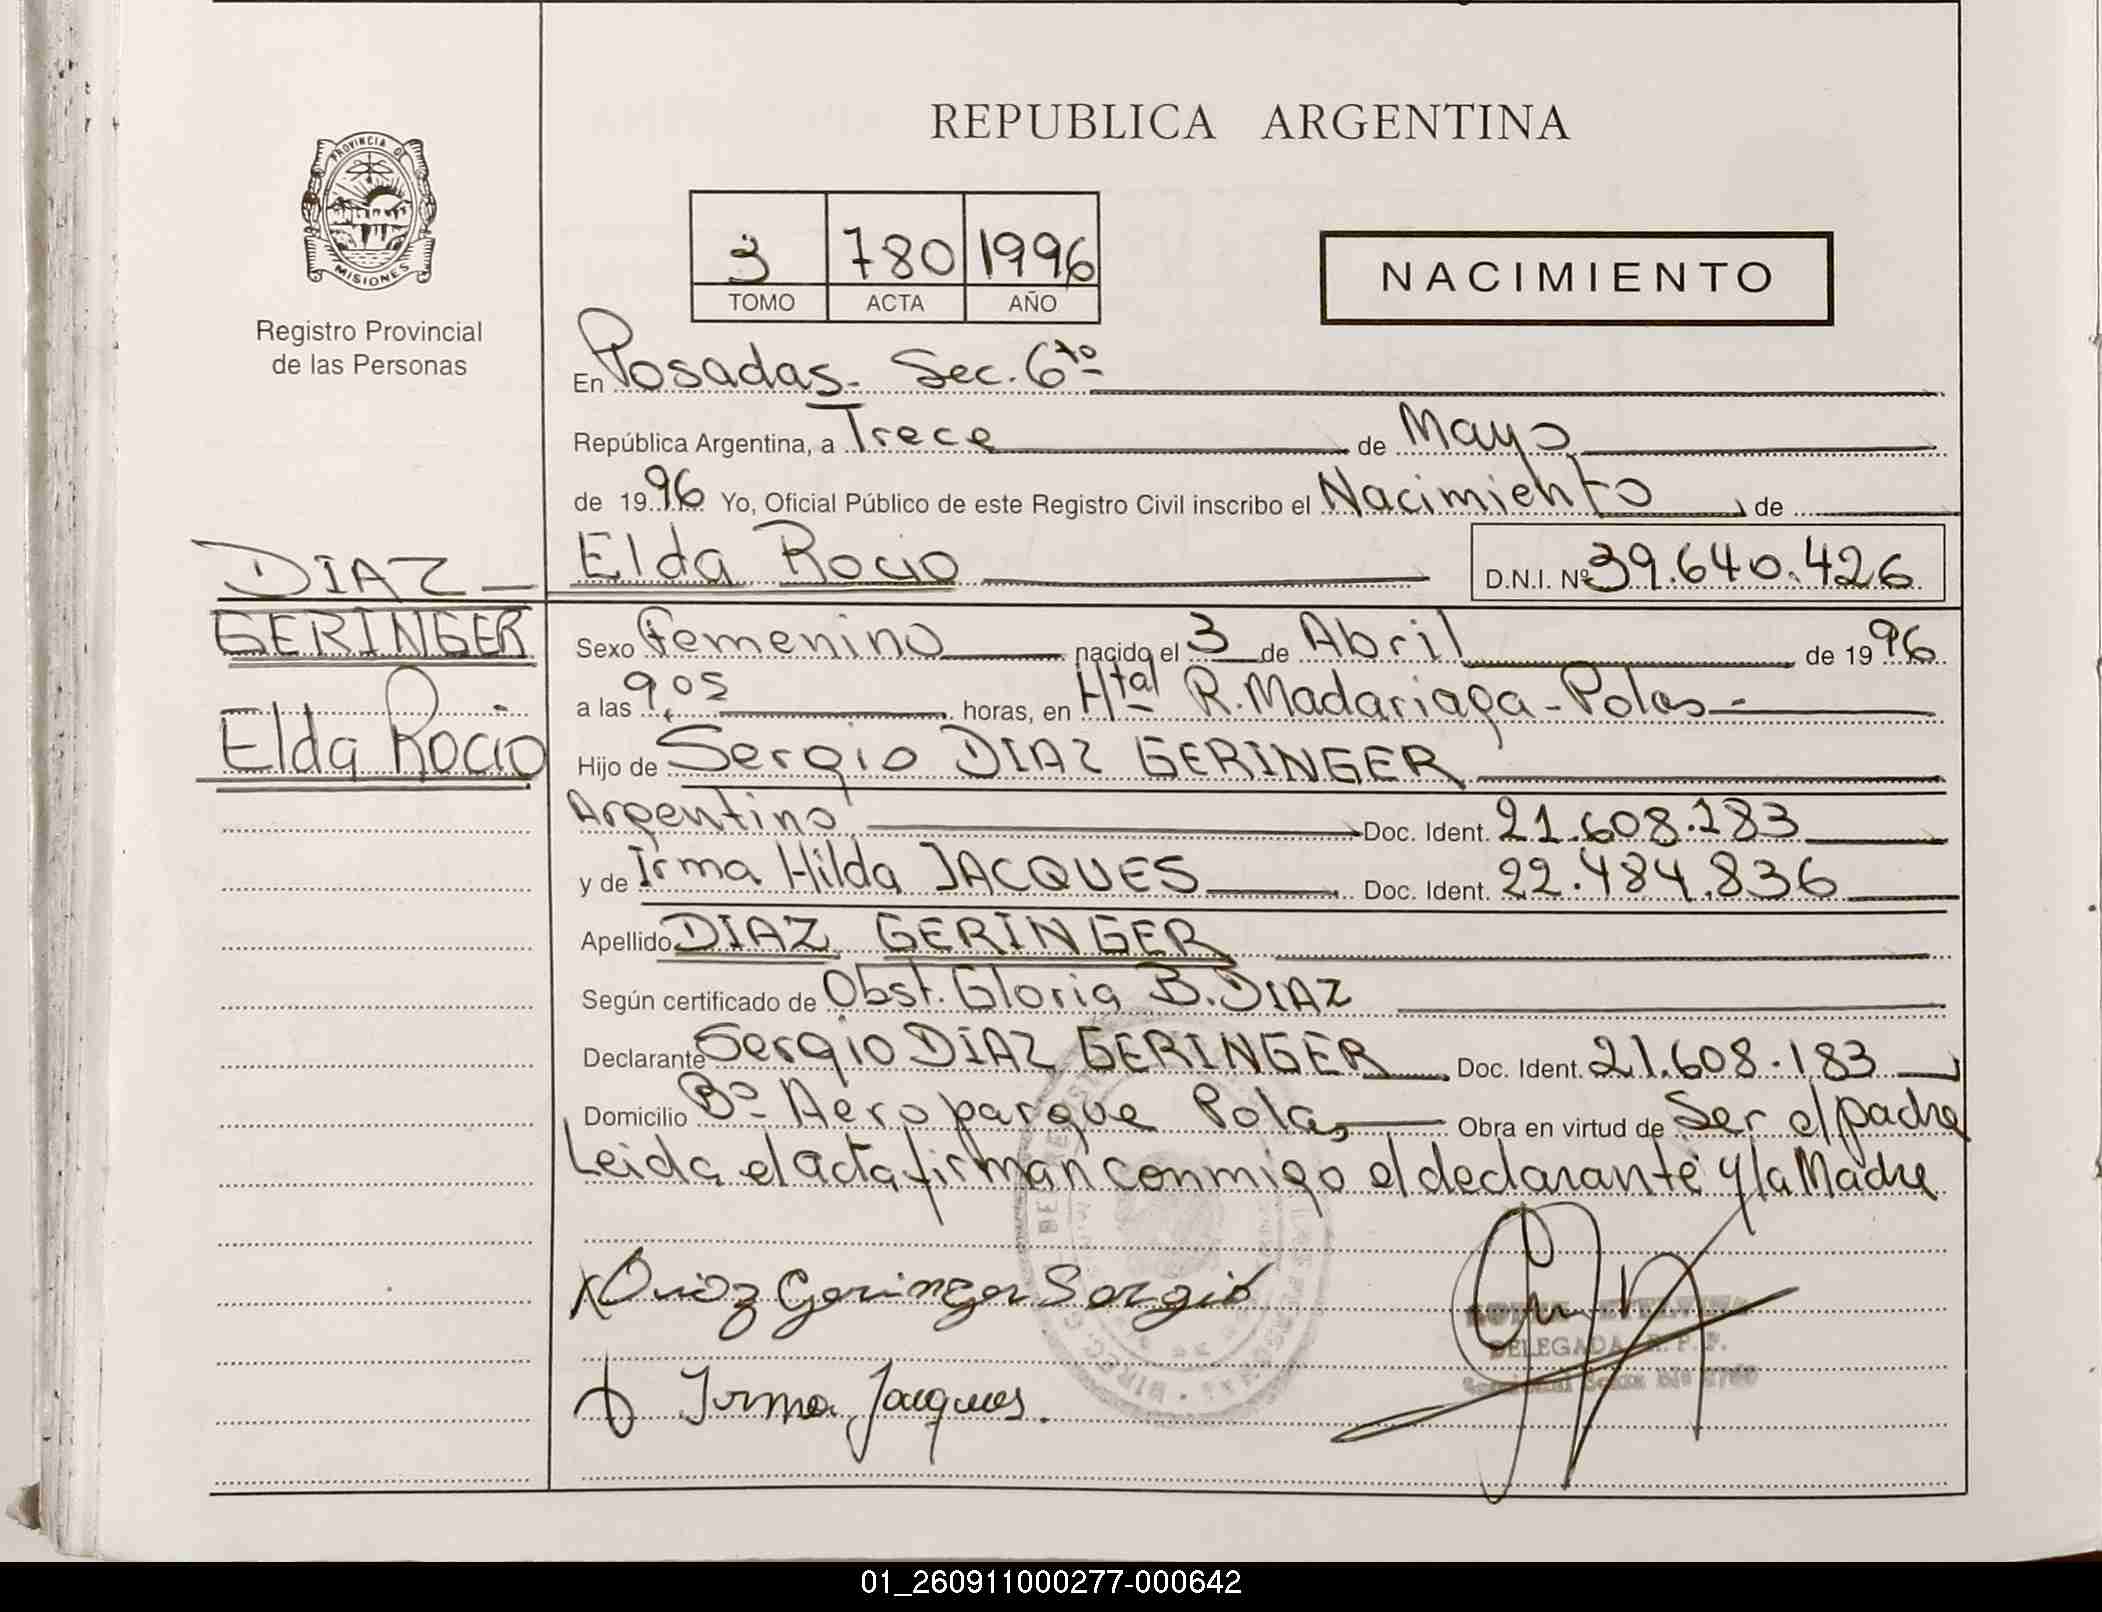 REPUBLICA ARGENTINA
PROVINCIA DE
MISIONES
Registro Provincial
de las Personas
3 780 1996
TOMO ACTA AÑO
NACIMIENTO
En Posadas. Sec. 6ta
República Argentina, a Trece de Mayo
de 1996 Yo, Oficial Público de este Registro Civil inscribo el Nacimiento de
Elda Rocio D.N.I. Nº 39.640.426
DIAZ
GERINGER
Elda Rocio
Sexo Femenino nacido el 3 de Abril de 1996
a las 9,05 horas, en Htal R. Madariaga - Pdas
Hijo de Sergio DIAZ GERINGER
Argentino Doc. Ident. 21.608.183
y de Irma Hilda JACQUES Doc. Ident. 22.484.836
Apellido DIAZ GERINGER
Según certificado de Obst. Gloria B. DIAZ
Declarante Sergio DIAZ GERINGER Doc. Ident. 21.608.183
Domicilio Bº Aeroparque Pdas Obra en virtud de Ser el padre
Leida el acta firman conmigo el declarante y la Madre
Diaz Geringer Sergio
DELEGADA R. P. P.
Irma Jacques.
01_260911000277-000642